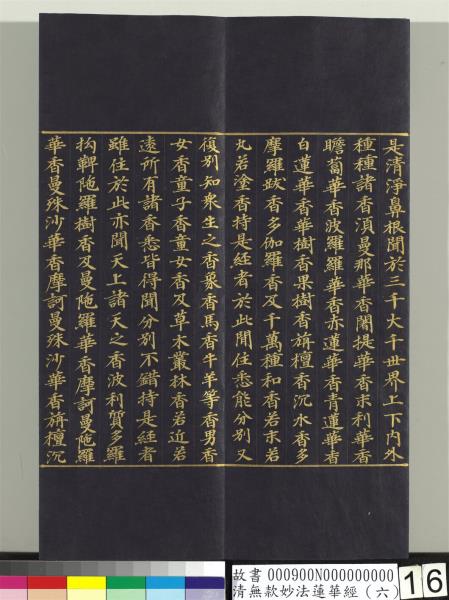 是清淨鼻根聞於三千大千世界上下內外
種種諸香湏曼那華香闍提華香末利華香
瞻蔔華香波羅羅華香赤蓮華香青蓮華香
白蓮華香華樹香果樹香旃檀香沉水香多
摩羅跋香多伽羅香及千萬種和香若末若
丸若塗香持是經者於此間住悉能分別又
復別知衆生之香象香馬香牛羊等香男香
女香童子香童女香及草木叢林香若近若
遠所有諸香悉皆得聞分別不錯持是經者
雖住於此亦聞天上諸天之香波利質多羅
拘鞞陁羅樹香及曼陁羅華香摩訶曼陁羅
華香曼殊沙華香摩訶曼殊沙華香旃檀沉
故書 000900N000000000
清無款妙法蓮華經（六）
16